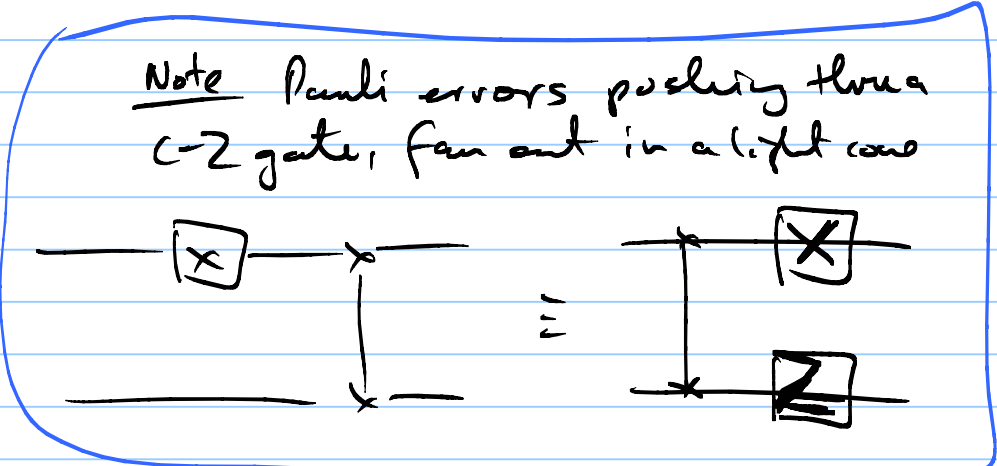 Note Pauli errors pushing thru a
C-Z gate, fan out in a light cone
X
≡
X
Z